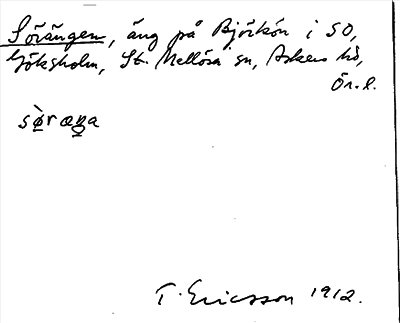 Sörängen, äng på Björkön i SO,
Göksholm, St. Mellösa sn, Askers hd,
Ör. l.
sø̀ræŋa
T. Ericsson 1912.